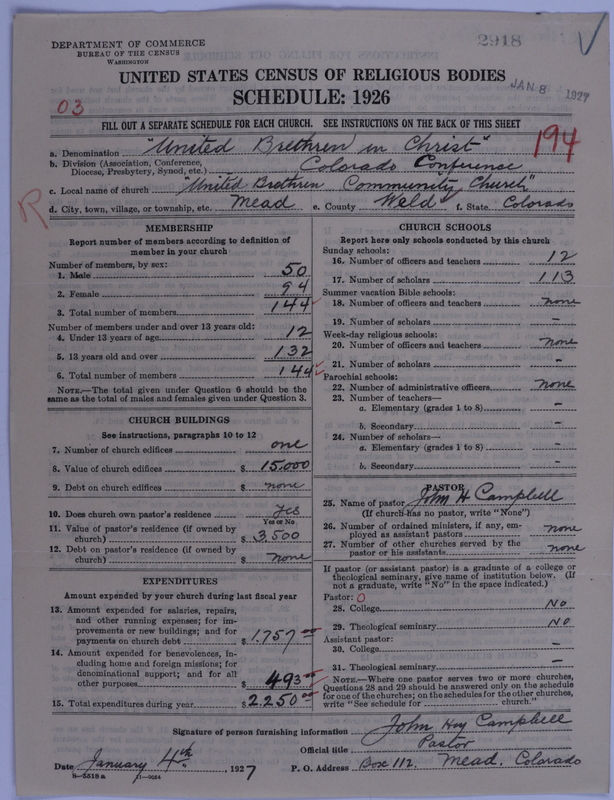 2918
DEPARTMENT OF COMMERCE
BUREAU OF THE CENSUS
WASHINGTON
UNITED STATES CENSUS OF RELIGIOUS BODIES
JAN 8 1927
SCHEDULE: 1926
03
FILL OUT A SEPARATE SCHEDULE FOR EACH CHURCH. SEE INSTRUCTIONS ON THE BACK OF THIS SHEET
194
a. Denomination "United Brethren in Christ"
b. Division (Association, Conference, Diocese, Presbytery, Synod, etc.) Colorado Conference
c. Local name of church "United Brethren Community Church"
R
d. City, town, village, or township, etc. Mead e. County Weld f. State Colorado
MEMBERSHIP
Report number of members according to definition of
member in your church
Number of members, by sex:
1. Male 50
2. Female 94
3. Total number of members 144
Number of members under and over 13 years old:
4. Under 13 years of age 12
5. 13 years old and over 132
6. Total number of members 144
NOTE.—The total given under Question 6 should be the
same as the total of males and females given under Question 3.
CHURCH BUILDINGS
See instructions, paragraphs 10 to 12
7. Number of church edifices one
8. Value of church edifices $ 15,000
9. Debt on church edifices $ none
10. Does church own pastor's residence? Yes
Yes or No
11. Value of pastor's residence (if owned by
church) $ 3,500
12. Debt on pastor's residence (if owned by
church) $ none
EXPENDITURES
Amount expended by your church during last fiscal year
13. Amount expended for salaries, repairs,
and other running expenses; for im-
provements or new buildings; and for
payments on church debt $ 1,757 00
14. Amount expended for benevolences, in-
cluding home and foreign missions; for
denominational support; and for all
other purposes $ 493 00
15. Total expenditures during year $ 2,250 00
CHURCH SCHOOLS
Report here only schools conducted by this church
Sunday schools:
16. Number of officers and teachers 12
17. Number of scholars 113
Summer vacation Bible schools:
18. Number of officers and teachers none
19. Number of scholars –
Week-day religious schools:
20. Number of officers and teachers none
21. Number of scholars –
Parochial schools:
22. Number of administrative officers none
23. Number of teachers—
a. Elementary (grades 1 to 8) –
b. Secondary –
24. Number of scholars—
a. Elementary (grades 1 to 8) –
b. Secondary –
PASTOR
25. Name of pastor John H Campbell
(If church has no pastor, write "None")
26. Number of ordained ministers, if any, em-
ployed as assistant pastors none
27. Number of other churches served by the
pastor or his assistants none
If pastor (or assistant pastor) is a graduate of a college or
theological seminary, give name of institution below. (If
not a graduate, write "No" in the space indicated.)
Pastor: 0
28. College No
29. Theological seminary No
Assistant pastor:
30. College –
31. Theological seminary –
NOTE.—Where one pastor serves two or more churches,
Questions 28 and 29 should be answered only on the schedule
for one of the churches; on the schedules for the other churches,
write "See schedule for church."
Signature of person furnishing information John Hoy Campbell
Official title Pastor
Date January 4th, 1927 P. O. Address Box 112. Mead, Colorado
8-5518 a 11-9054